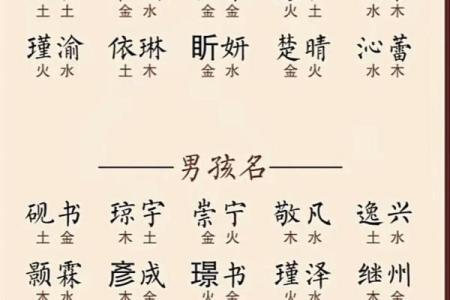 土土 金水 金 火土 木
瑾渝 依琳 昕妍 楚晴 沁蕾
火水 土木 金水 金火 水木
男孩名
砚书 琼宇 崇宁 敬凡 逸兴
土金 木土 金火 木水 土水
颢霖 彦成 璟书 瑾泽 继州
木水 木金 木金 火水 木金